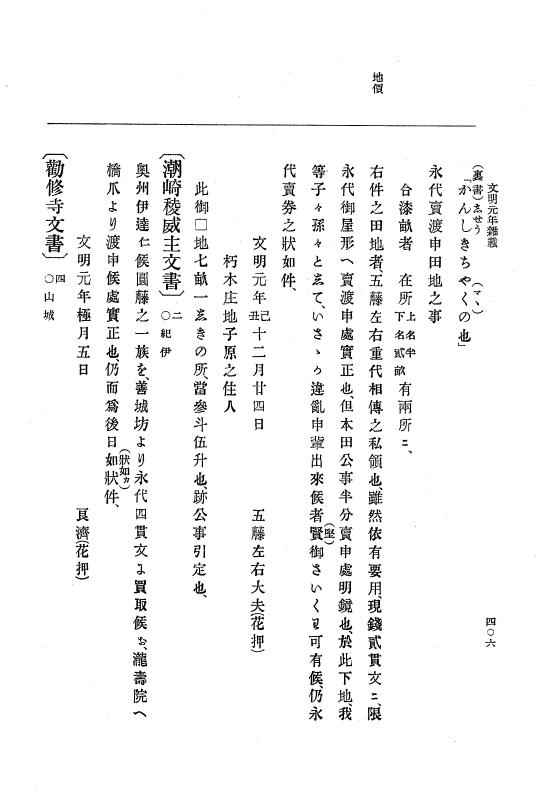 文明元年雜載
四〇六
地價
(裏書)ゑせう　(マヽ)
「かんしきちやくの也」
永代賣渡申田地之事
合漆畝者　在所上名半下名貳畝有兩所ニ、
右件之田地者、五藤左右重代相傳之私領也、雖然依有要用、現錢貳貫文ニ、限
永代御屋形へ賣渡申處實正也、但本田公事半分賣申處明鏡也、於此下地、我
等子々孫々とゑて、いさゝゝ違亂申輩出來候者、賢(堅)御さいくゎ可有候、仍永
代賣券之狀如件、
文明元年己丑十二月廿四日　五藤左右大夫(花押)
朽木庄地子原之住人
此御□地七畝一ゑきの所、當參斗伍升也、跡公事引定也、
〔潮崎稜威主文書〕二〇紀伊
奧州伊達仁候圓藤之一族を、善城坊より永代四貫文ニ買取候お、瀧壽院へ
橋爪より渡申候處實正也、仍而爲後日如狀(狀如カ)件、
文明元年極月五日　良濟(花押)
〔勸修寺文書〕四〇山城